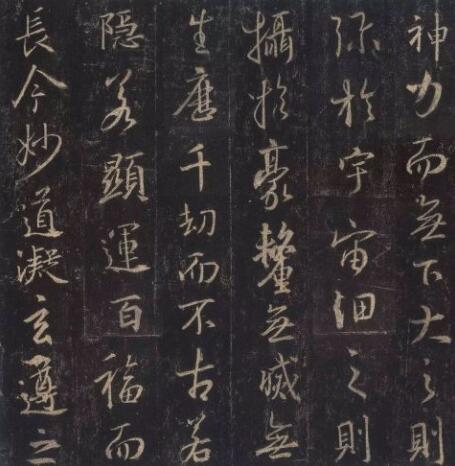 神力而無下大之則
弥於宇宙細之則
攝於豪釐無滅無
生歷千劫而不古若
隠若顯運百福而
長今妙道凝玄遵之